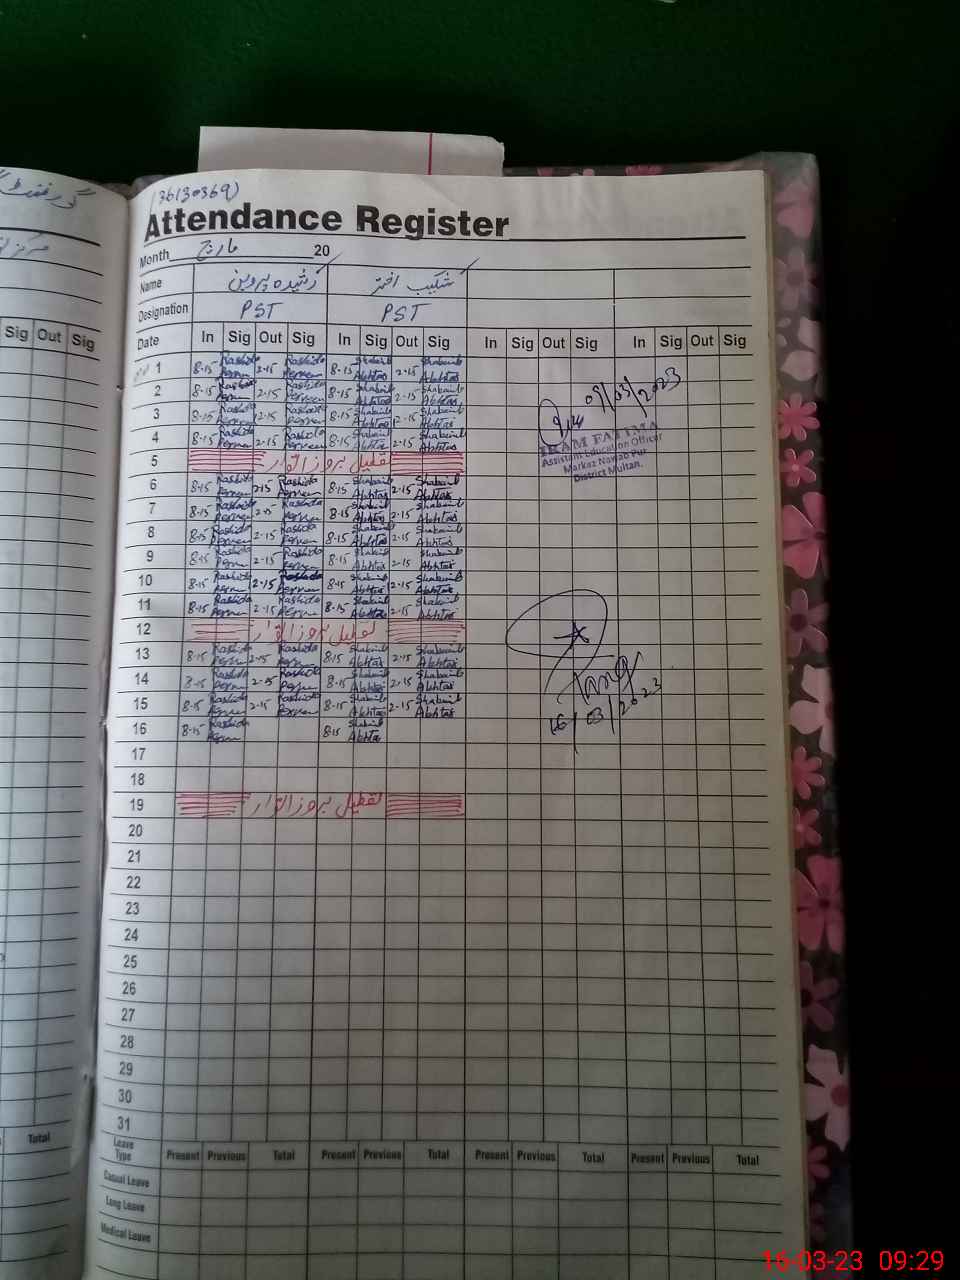 (36130369)
Attendance Register
Month مارچ 20
Name رشیدہ پروین شکیب اختر
Designation PST PST
Date In Sig Out Sig In Sig Out Sig In Sig Out Sig In Sig Out Sig
Sig Out Sig
1 8-15 Rashida Perven 2-15 Rashida Perven 8-15 Shakaib Akhtar 2-15 Shakaib Akhtar
2 8-15 Rashida Perven 2-15 Rashida Perven 8-15 Shakaib Akhtar 2-15 Shakaib Akhtar
3 8-15 Rashida Perven 2-15 Rashida Perven 8-15 Shakaib Akhtar 2-15 Shakaib Akhtar
4 8-15 Rashida Perven 2-15 Rashida Perven 8-15 Shakaib Akhtar 2-15 Shakaib Akhtar
5 تعطیل بروز اتوار
6 8-15 Rashida Perven 2-15 Rashida Perven 8-15 Shakaib Akhtar 2-15 Shakaib Akhtar
7 8-15 Rashida Perven 2-15 Rashida Perven 8-15 Shakaib Akhtar 2-15 Shakaib Akhtar
8 8-15 Rashida Perven 2-15 Rashida Perven 8-15 Shakaib Akhtar 2-15 Shakaib Akhtar
9 8-15 Rashida Perven 2-15 Rashida Perven 8-15 Shakaib Akhtar 2-15 Shakaib Akhtar
10 8-15 Rashida Perven 2-15 Rashida Perven 8-15 Shakaib Akhtar 2-15 Shakaib Akhtar
11 8-15 Rashida Perven 2-15 Rashida Perven 8-15 Shakaib Akhtar 2-15 Shakaib Akhtar
12 تعطیل بروز اتوار
13 8-15 Rashida Perven 2-15 Rashida Perven 8-15 Shakaib Akhtar 2-15 Shakaib Akhtar
14 8-15 Rashida Perven 2-15 Rashida Perven 8-15 Shakaib Akhtar 2-15 Shakaib Akhtar
15 8-15 Rashida Perven 2-15 Rashida Perven 8-15 Shakaib Akhtar 2-15 Shakaib Akhtar
16 8-15 Rashida Perven 8-15 Shakaib Akhtar
17
18
19 تعطیل بروز اتوار
20
21
22
23
24
25
26
27
28
29
30
31
09/03/2023
IRAM FATIMA
Assistant Education Officer
Markaz Nawab Pur
District Multan.
16/03/2023
Total
Leave Type Present Previous Total Present Previous Total Present Previous Total Present Previous Total
Casual Leave
Long Leave
Medical Leave
16-03-23 09:29